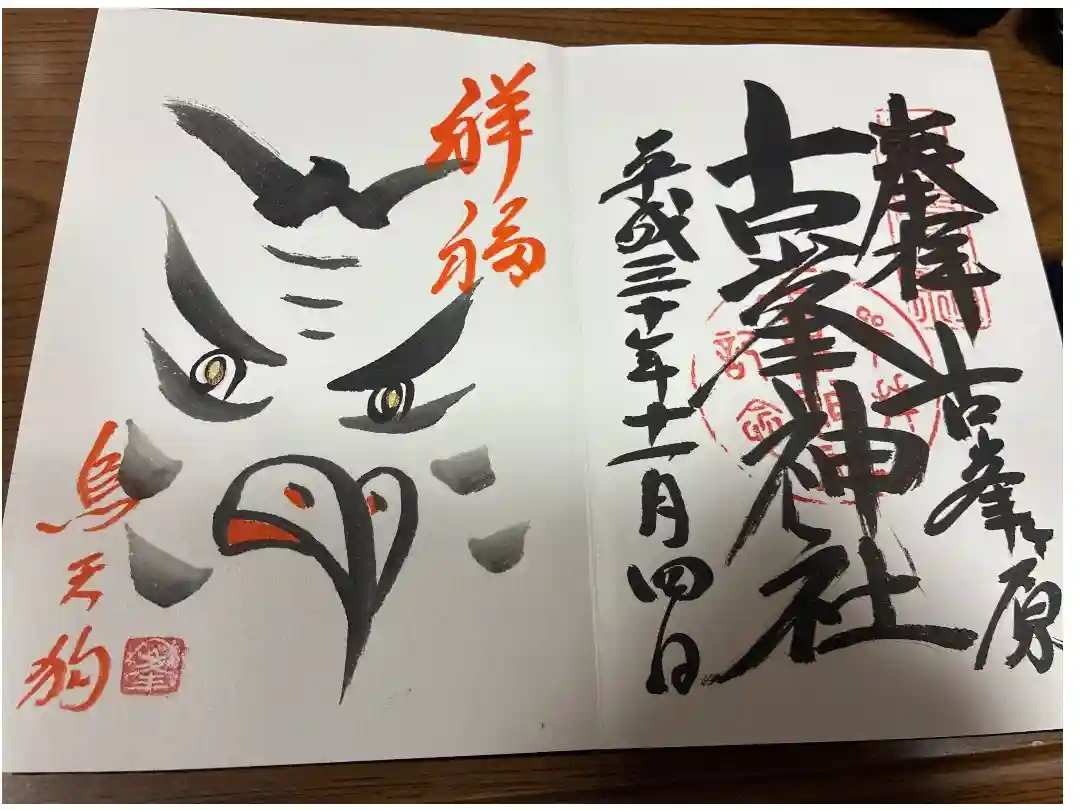 奉拝
古峯ヶ原
古峯神社
平成三十年十一月四日
祥福
烏天狗
峯